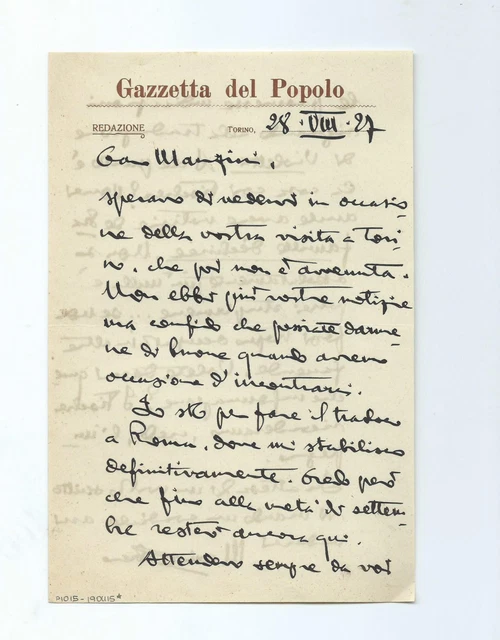 Gazzetta del Popolo
REDAZIONE TORINO, 28 · VIII · 27
Caro Manzini,
speravo di vedervi in occasio-
ne della vostra visita a Tori-
no, che poi non è avvenuta.
Non ebbi più vostre notizie
ma confido che possiate darme-
ne di buone quando avremo
occasione d'incontrarci.
Io sto per fare il trasloco
a Roma, dove mi stabilisco
definitivamente. Credo però
che fino alla metà di settem-
bre resterò ancora qui.
Attendevo sempre da voi
P1015-190115*